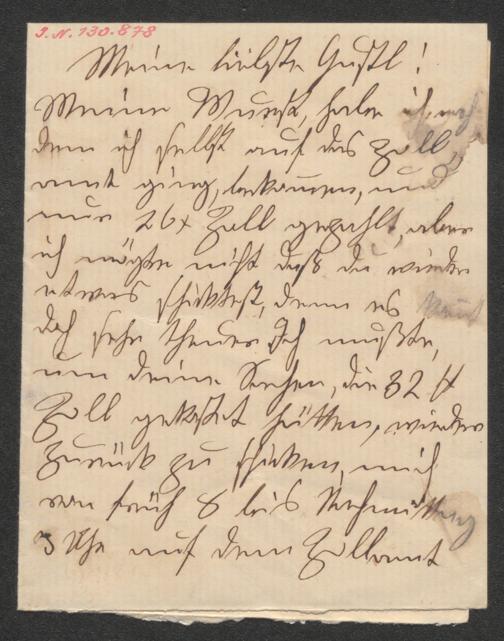 J.N. 130.878
Meine liebste Gustl!
Meine Wurst, habe ich, nach
dem ich selbst auf das Zoll,
amt ging, bekommen, und
nur 26x Zoll gezahlt, aber
ich mögte nicht daß du wieder
etwas schicktest, denn es kommt
doch sehr theuer. Ich mußte,
um deine Sachen, die 32 fl
Zoll gekostet hätten, wieder
zurück zu schicken, mich
von früh 8 bis Nachmittag
3 Uhr auf dem Zollamt